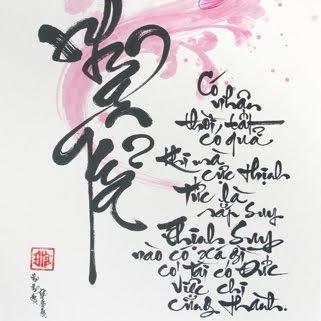 Nhân
Quả
Có
nhân
thời, tất
có quả
Khi mà
cực thịnh
Tức là
sắp suy
Thịnh Suy
nào có xá gì
có tài có Đức
việc chi
cũng thành.